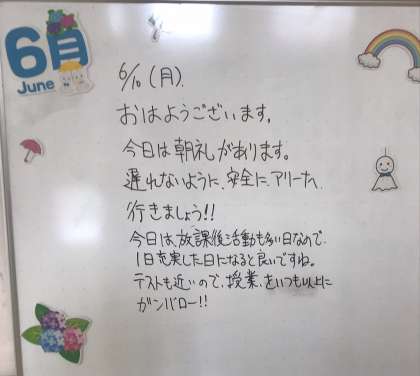 6月
June
6/10(月).
おはようございます。
今日は朝礼があります。
遅れないように、安全に、アリーナへ
行きましょう!!
今日は、放課後活動も多い日なので、
1日充実した日になると良いですね。
テストも近いので、授業、をいつも以上に
ガンバロー!!